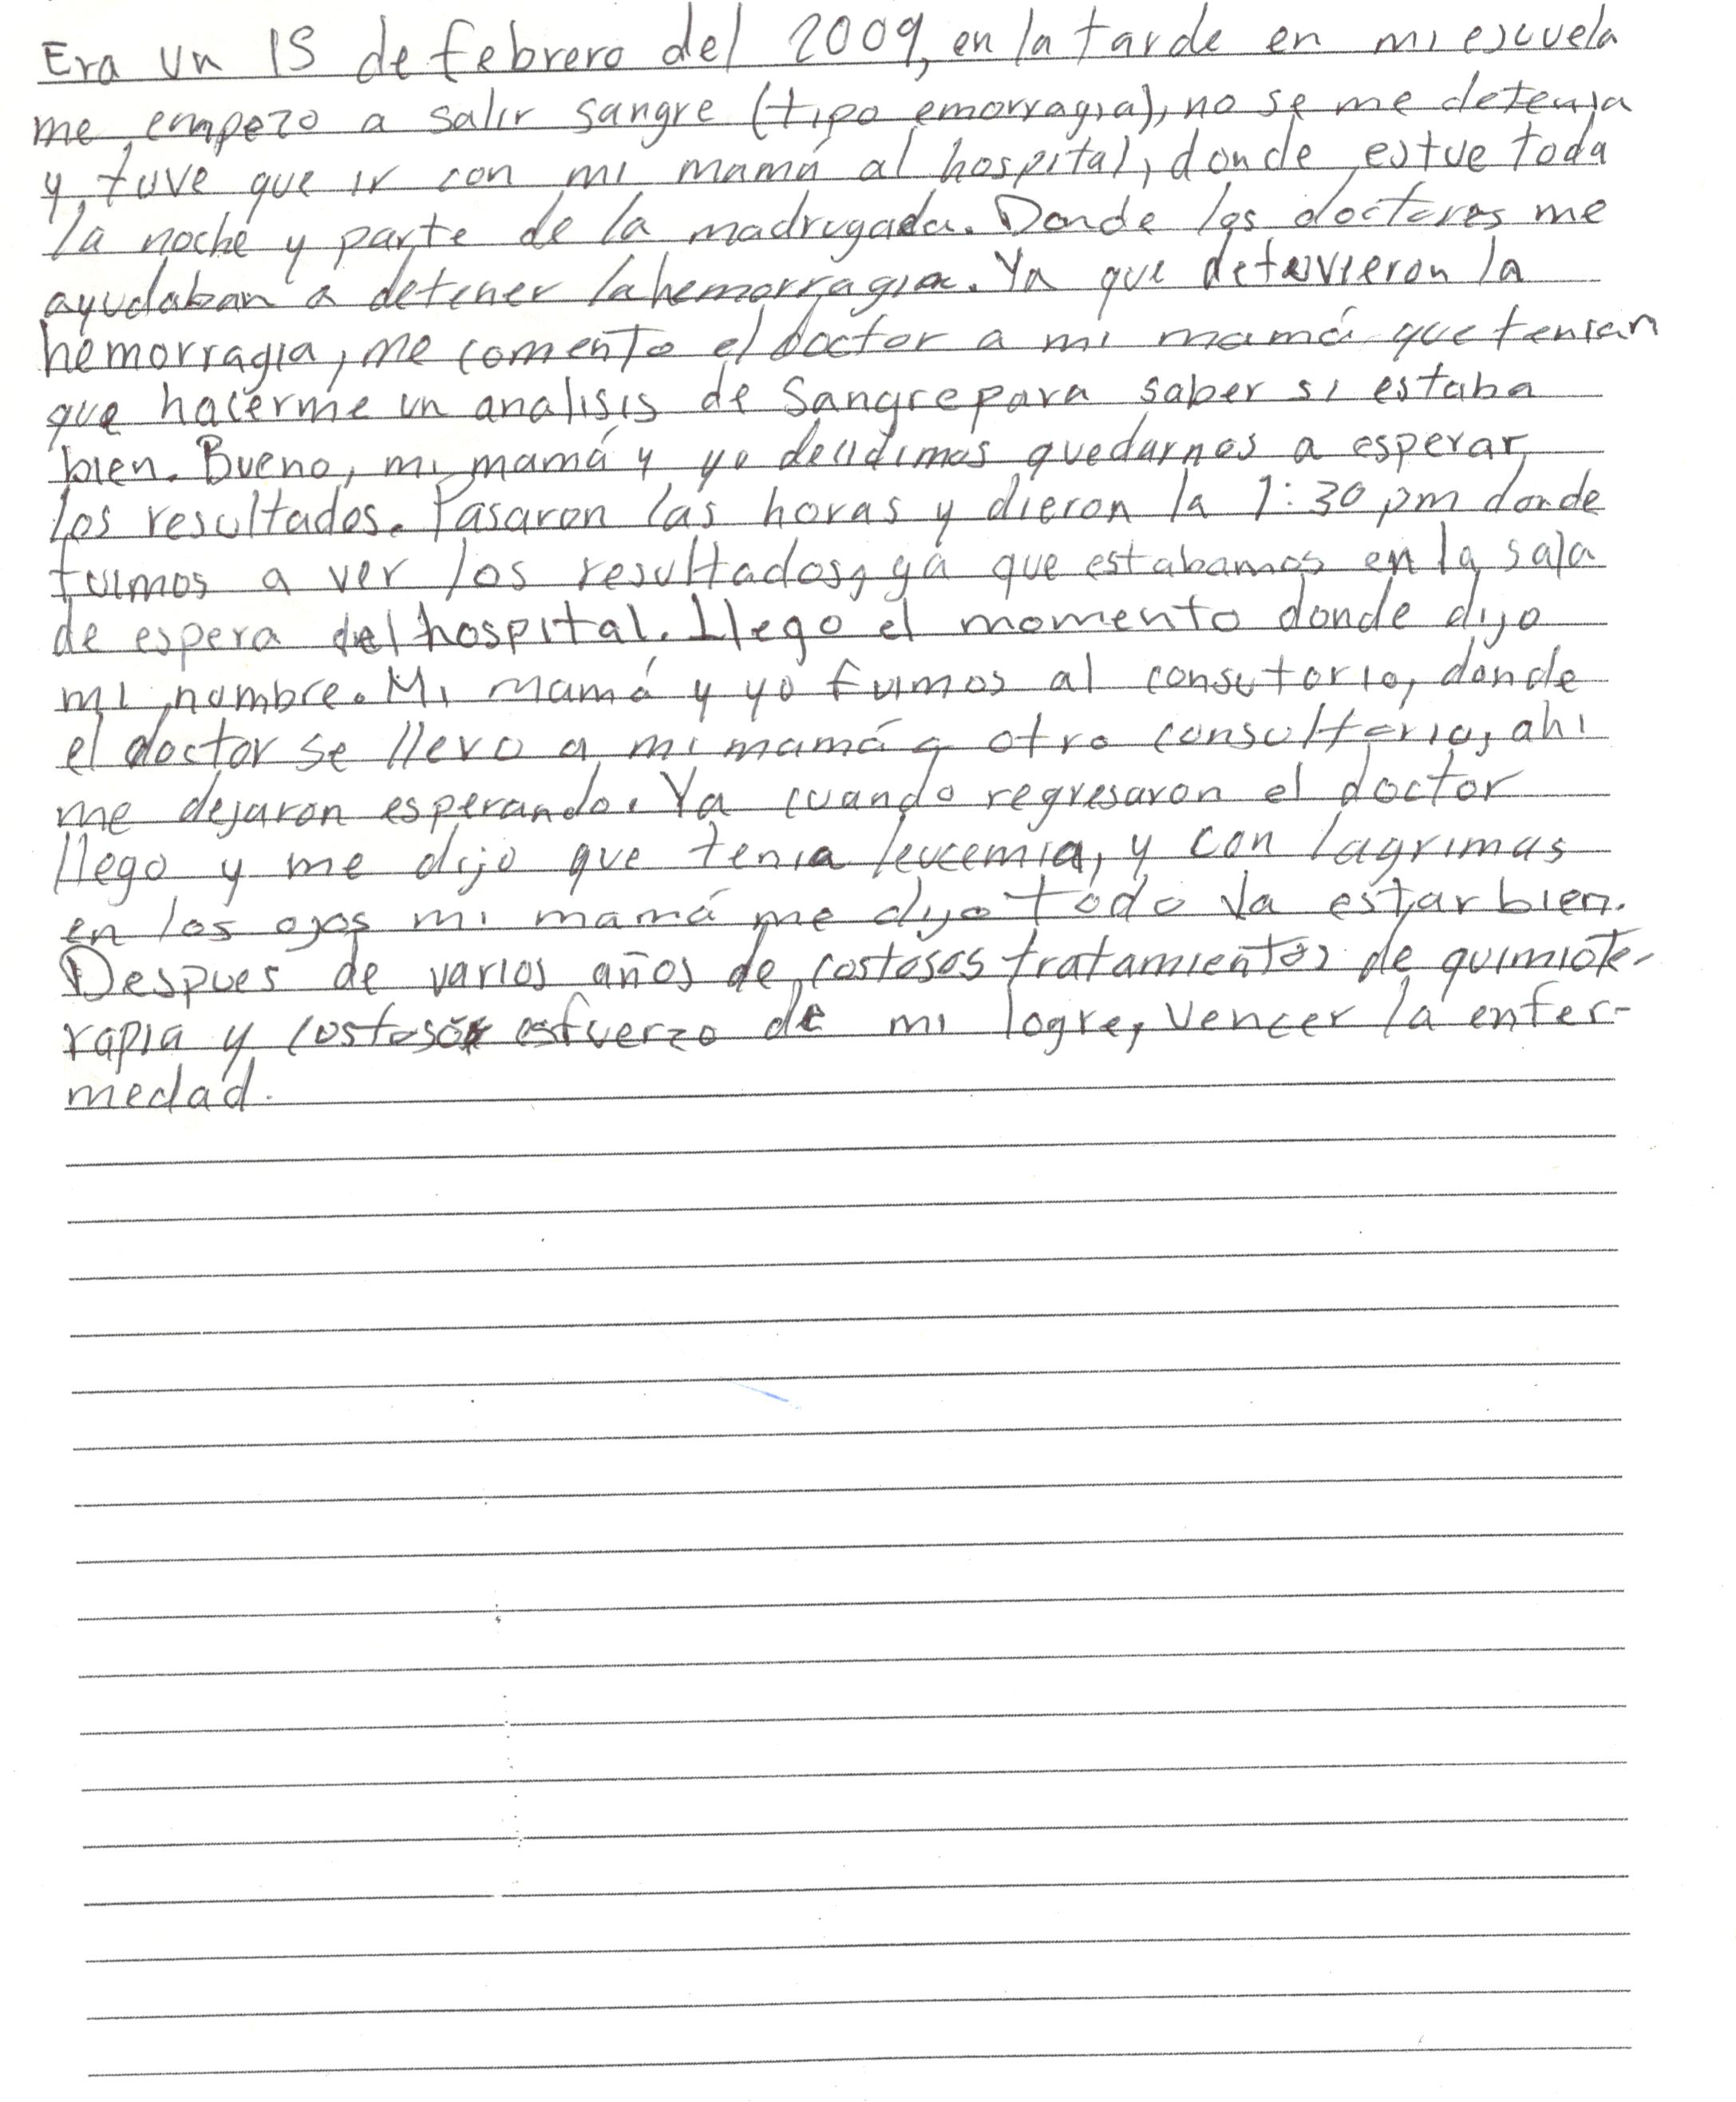 Era un 15 de febrero del 2009, en la tarde en mi escuela
me empezo a salir sangre (tipo emorragia), no se me detenia
y tuve que ir con mi mamá al hospital, donde estue toda
la noche y parte de la madrugada. Donde los doctores me
ayudaban a detener la hemorragia. Ya que detuvieron la
hemorragia, me comento el doctor a mi mamá que tenian
que hacerme un analisis de sangre para saber si estaba
bien. Bueno, mi mamá y yo decidimos quedarnos a esperar
los resultados. Pasaron las horas y dieron la 1:30 pm donde
fuimos a ver los resultados, ya que estabamos en la sala
de espera del hospital. Llego el momento donde dijo
mi nombre. Mi mamá y yo fuimos al consutorio, donde
el doctor se llevo a mi mamá a otro consultorio, ahi
me dejaron esperando. Ya cuando regresaron el doctor
llego y me dijo que tenia leucemia, y con lagrimas
en los ojos mi mamá me dijo todo va estar bien.
Despues de varios años de costosos tratamientos de quimiote-
rapia y costoso esfuerzo de mi logre, vencer la enfer-
medad.